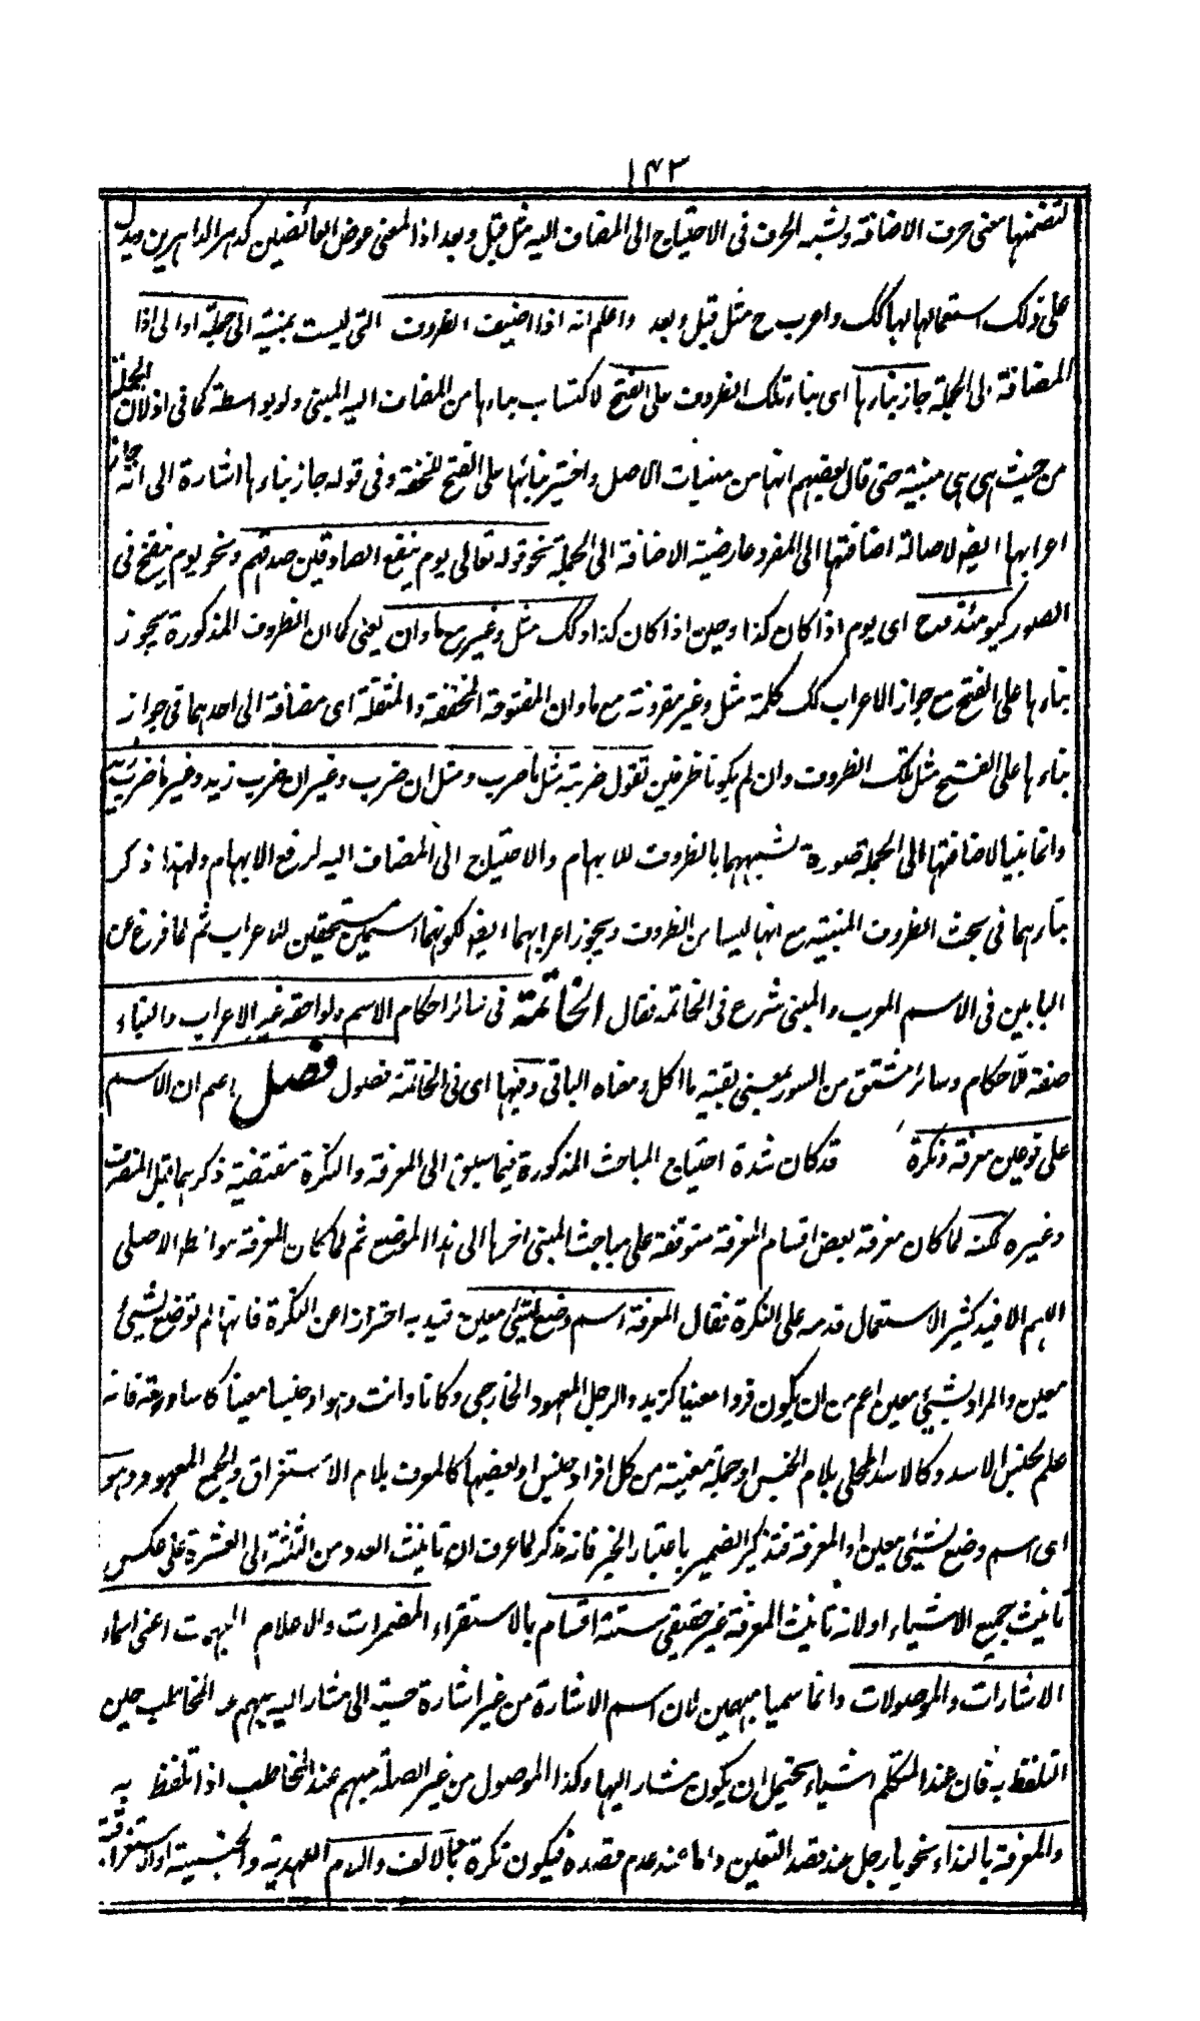 ١٤٣
لتضمنها معنى حرف الاضافة ولشبه الحرف فى الاحتياج الى المضاف اليه مثل قبل وبعد اذ المعنى عوض العائضين كدهر الداهرين ويدل
على ذلك استعمالهالهاكك واعرب ح مثل قبل وبعد واعلم انه اذا اضيف الظروف التى ليست بمبنية الى جملة او الى اذا
المضافة الى الجملة جاز بناءها اى بناء تلك الظروف على الفتح لاكتساب بناءها من المضاف اليه المبنى ولو بواسطة كما فى اذ لان الجملة
من حيث هى هى مبنية حتى قال بعضهم انها من مبنيات الاصل واختير بنائها على الفتح للخفة وفى قوله جاز بناءها اشارة الى انه جاز
اعرابها ايضا لاصالة اضافتها الى المفرد وعارضية الاضافة الى الجملة نحو قوله تعالى يوم ينفع الصادقين صدقهم ونحو يوم ينفخ فى
الصور كيومئذ وح اى يوم اذا كان كذا وحين اذا كان كذا وكك مثل وغير مع ما وان يعنى كما ان الظروف المذكورة يجوز
بناءها على الفتح مع جواز الاعراب كك كلمة مثل وغير مقرونة مع ما وان المفتوحة المخففة والمثقلة اى مضافة الى احدهما فى جواز
بناءها على الفتح مثل تلك الظروف وان لم يكونا ظرفين تقول ضربته مثل ما ضرب ومثل ان ضرب وغير ان ضرب زيد وغير ما ضربت
وانما بنيا لاضافتها الى الجملة صورة لشبههما بالظروف للابهام والاحتياج الى المضاف اليه لرفع الابهام ولهذا ذكر
بناءهما فى بحث الظروف المبنية مع انها ليسا من الظروف ويجوز اعرابهما ايضا لكونهما اسمين مستحقين للاعراب ثم لما فرغ عن
البابين فى الاسم المعرب والمبنى شرع فى الخاتمة فقال الخاتمة فى سائر احكام الاسم ولواحقه غير الاعراب والبناء
صفة للاحكام وسائر مشتق من السور بمعنى بقية ما اكل ومعناه الباقى وفيها اى فى الخاتمة فصول فصل اعلم ان الاسم
على نوعين معرفة ونكرة قد كان شدة احتياج المباحث المذكورة فيما سبق الى المعرفة والنكرة مقتضية ذكرهما قبل المنصرف
وغيره لكنه لما كان معرفة بعض اقسام المعرفة متوقفة على مباحث المبنى اخرها الى هذا الموضع ثم لما كان المعرفة هو الاصلى
الاهم الافيد كثير الاستعمال قدمه على النكرة فقال المعرفة اسم وضع لشيئ معين قيد به احترازا عن النكرة فانها لم توضع لشيئ
معين والمراد بشيئ معين اعم من ان يكون فردا معينا كزيد والرجل المعهود الخارجى وكانا وانت وهو او جنسا معينا كاسامة فانه
علم لجنس الاسد وكالاسد المحلى بلام الجنس او جملة معينة من كل افراد جنس او بعضها كالمعرف بلام الاستغراق والجمع المعهود وهو
اى اسم وضع لشيئ معين او المعرفة فتذكير الضمير باعتبار الخبر فانه مذكر لما عرف ان تانيث العدد من الثلثة الى العشرة على عكس
تانيث جميع الاشياء او لانه تانيث المعرفة غير حقيقى ستة اقسام بالاستقراء المضمرات والاعلام المبهمات اعنى اسماء
الاشارات والموصولات وانما سميا مبهمين لان اسم الاشارة من غير اشارة حسية الى مشار اليه مبهم عند المخاطب حين
التلفظ به فان عند المتكلم اشياء يحتمل ان يكون مشارا اليها وكذا الموصول من غير الصلة مبهم عند المخاطب اذا تلفظ به
والمعرفة بالنداء نحو يا رجل عند قصد التعيين واما عند عدم قصده فيكون نكرة بالالف واللام العهدية والجنسية او الاستغراقية